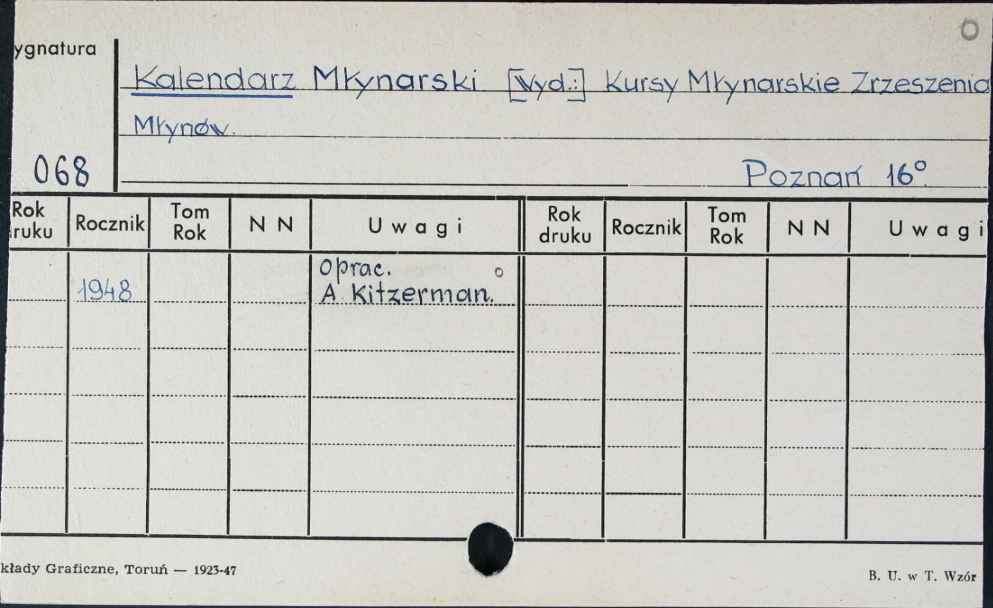 ygnatura
Kalendarz Młynarski [Wyd.:] Kursy Młynarskie Zrzeszenia
Młynów.
068
Poznań 16°.
Rok druku Rocznik Tom Rok N N Uwagi Rok druku Rocznik Tom Rok N N Uwagi
1948 Oprac.
A Kitzerman.
kłady Graficzne, Toruń — 1923-47
B. U. w T. Wzór